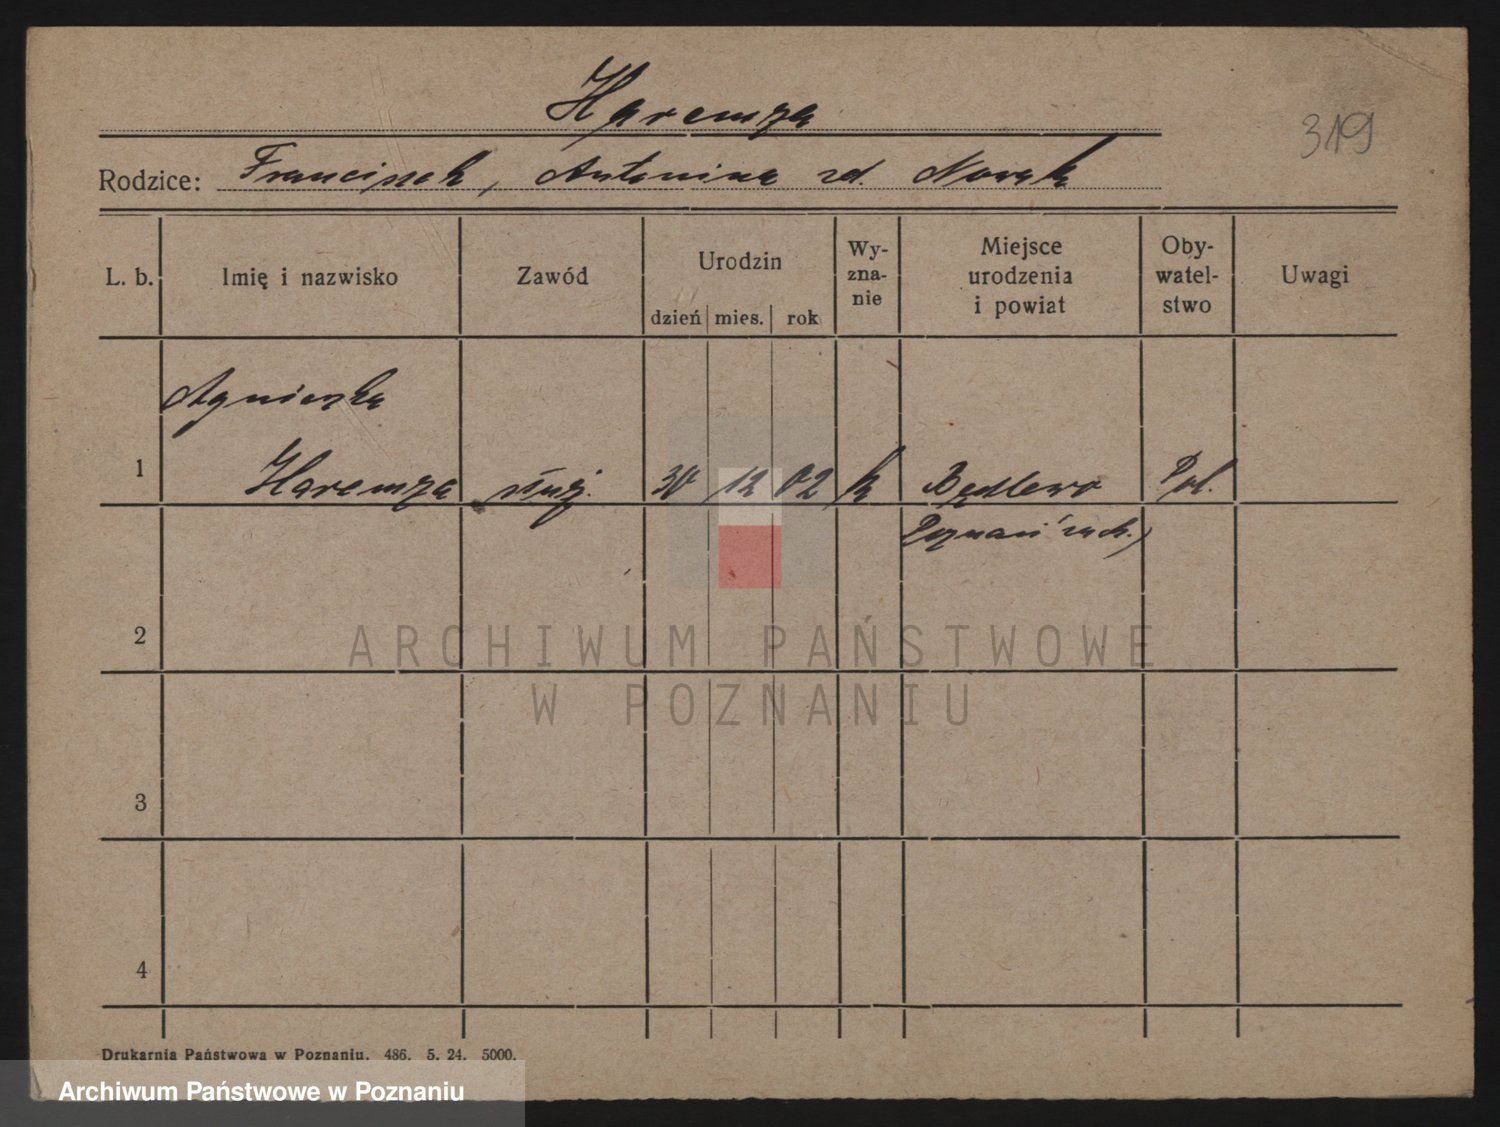 Haremza
319
Rodzice: Franciszek, Antonina zd. Nowak
L. b. Imię i nazwisko Zawód Urodzin dzień mies. rok Wy-zna-nie Miejsce urodzenia i powiat Oby-watel-stwo Uwagi
Agnieszka
1 Haremza służ. 30 12 02 k Będlewo Pol.
Poznań zach.)
2
ARCHIWUM PAŃSTWOWE
W POZNANIU
3
4
Drukarnia Państwowa w Poznaniu. 486. 5. 24. 5000.
Archiwum Państwowe w Poznaniu